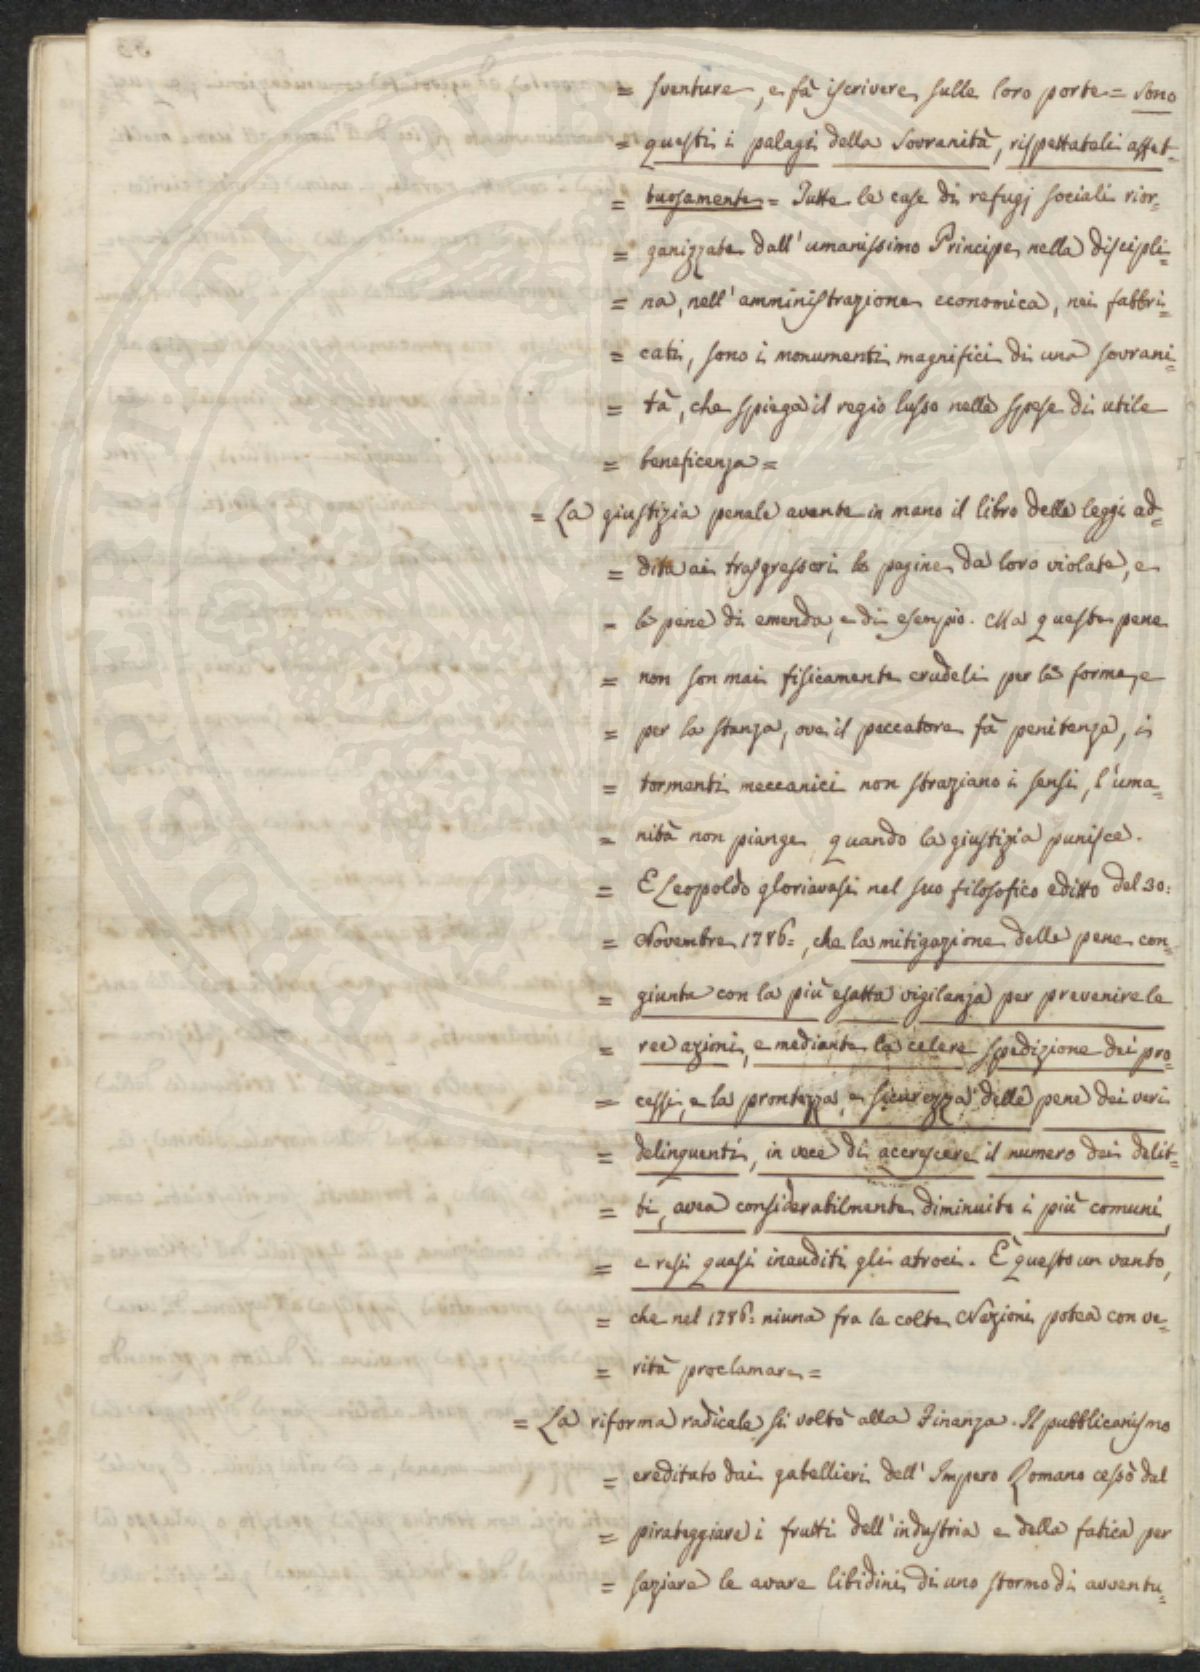 = sventure, e fà iscrivere sulle loro porte = sono
= questi i palagi della Sovranità, rispettateli affet-
= tuosamente = Tutte le case di refugj sociali rior-
= ganizzate dall'umanissimo Principe nella discipli-
= na, nell'amministrazione economica, nei fabbri-
= cati, sono i monumenti magnifici di una sovrani-
= tà, che spiega il regio lusso nelle spese di utile
= beneficenza =
= La giustizia penale avente in mano il libro delle leggi ad-
= dita ai trasgressori le pagine da loro violate, e
= le pene di emenda, e di esempio. Ma queste pene
= non son mai fisicamente crudeli per la forma, e
= per la stanza, ove il peccatore fà penitenza, i
= tormenti meccanici non straziano i sensi, l'uma-
= nità non piange quando la giustizia punisce.
= E Leopoldo gloriavasi nel suo filosofico editto del 30:
= Novembre 1786:, che la mitigazione delle pene con-
= giunta con la più esatta vigilanza per prevenire le
= ree azioni, e mediante la celere spedizione dei pro-
= cessi, e la prontezza, e sicurezza delle pene dei veri
= delinquenti, in vece di accrescere il numero dei delit-
= ti, avea considerabilmente diminuito i più comuni,
= e resi quasi inauditi gli atroci. È questo un vanto,
= che nel 1786: niuna fra le colte Nazioni potea con ve-
= rità proclamare =
= La riforma radicale si voltò alla Finanza. Il pubblicanismo
= ereditato dai gabellieri dell'Impero Romano cessò dal
= pirateggiare i frutti dell'industria e della fatica per
= saziare le avare libidini di uno stormo di avventu-